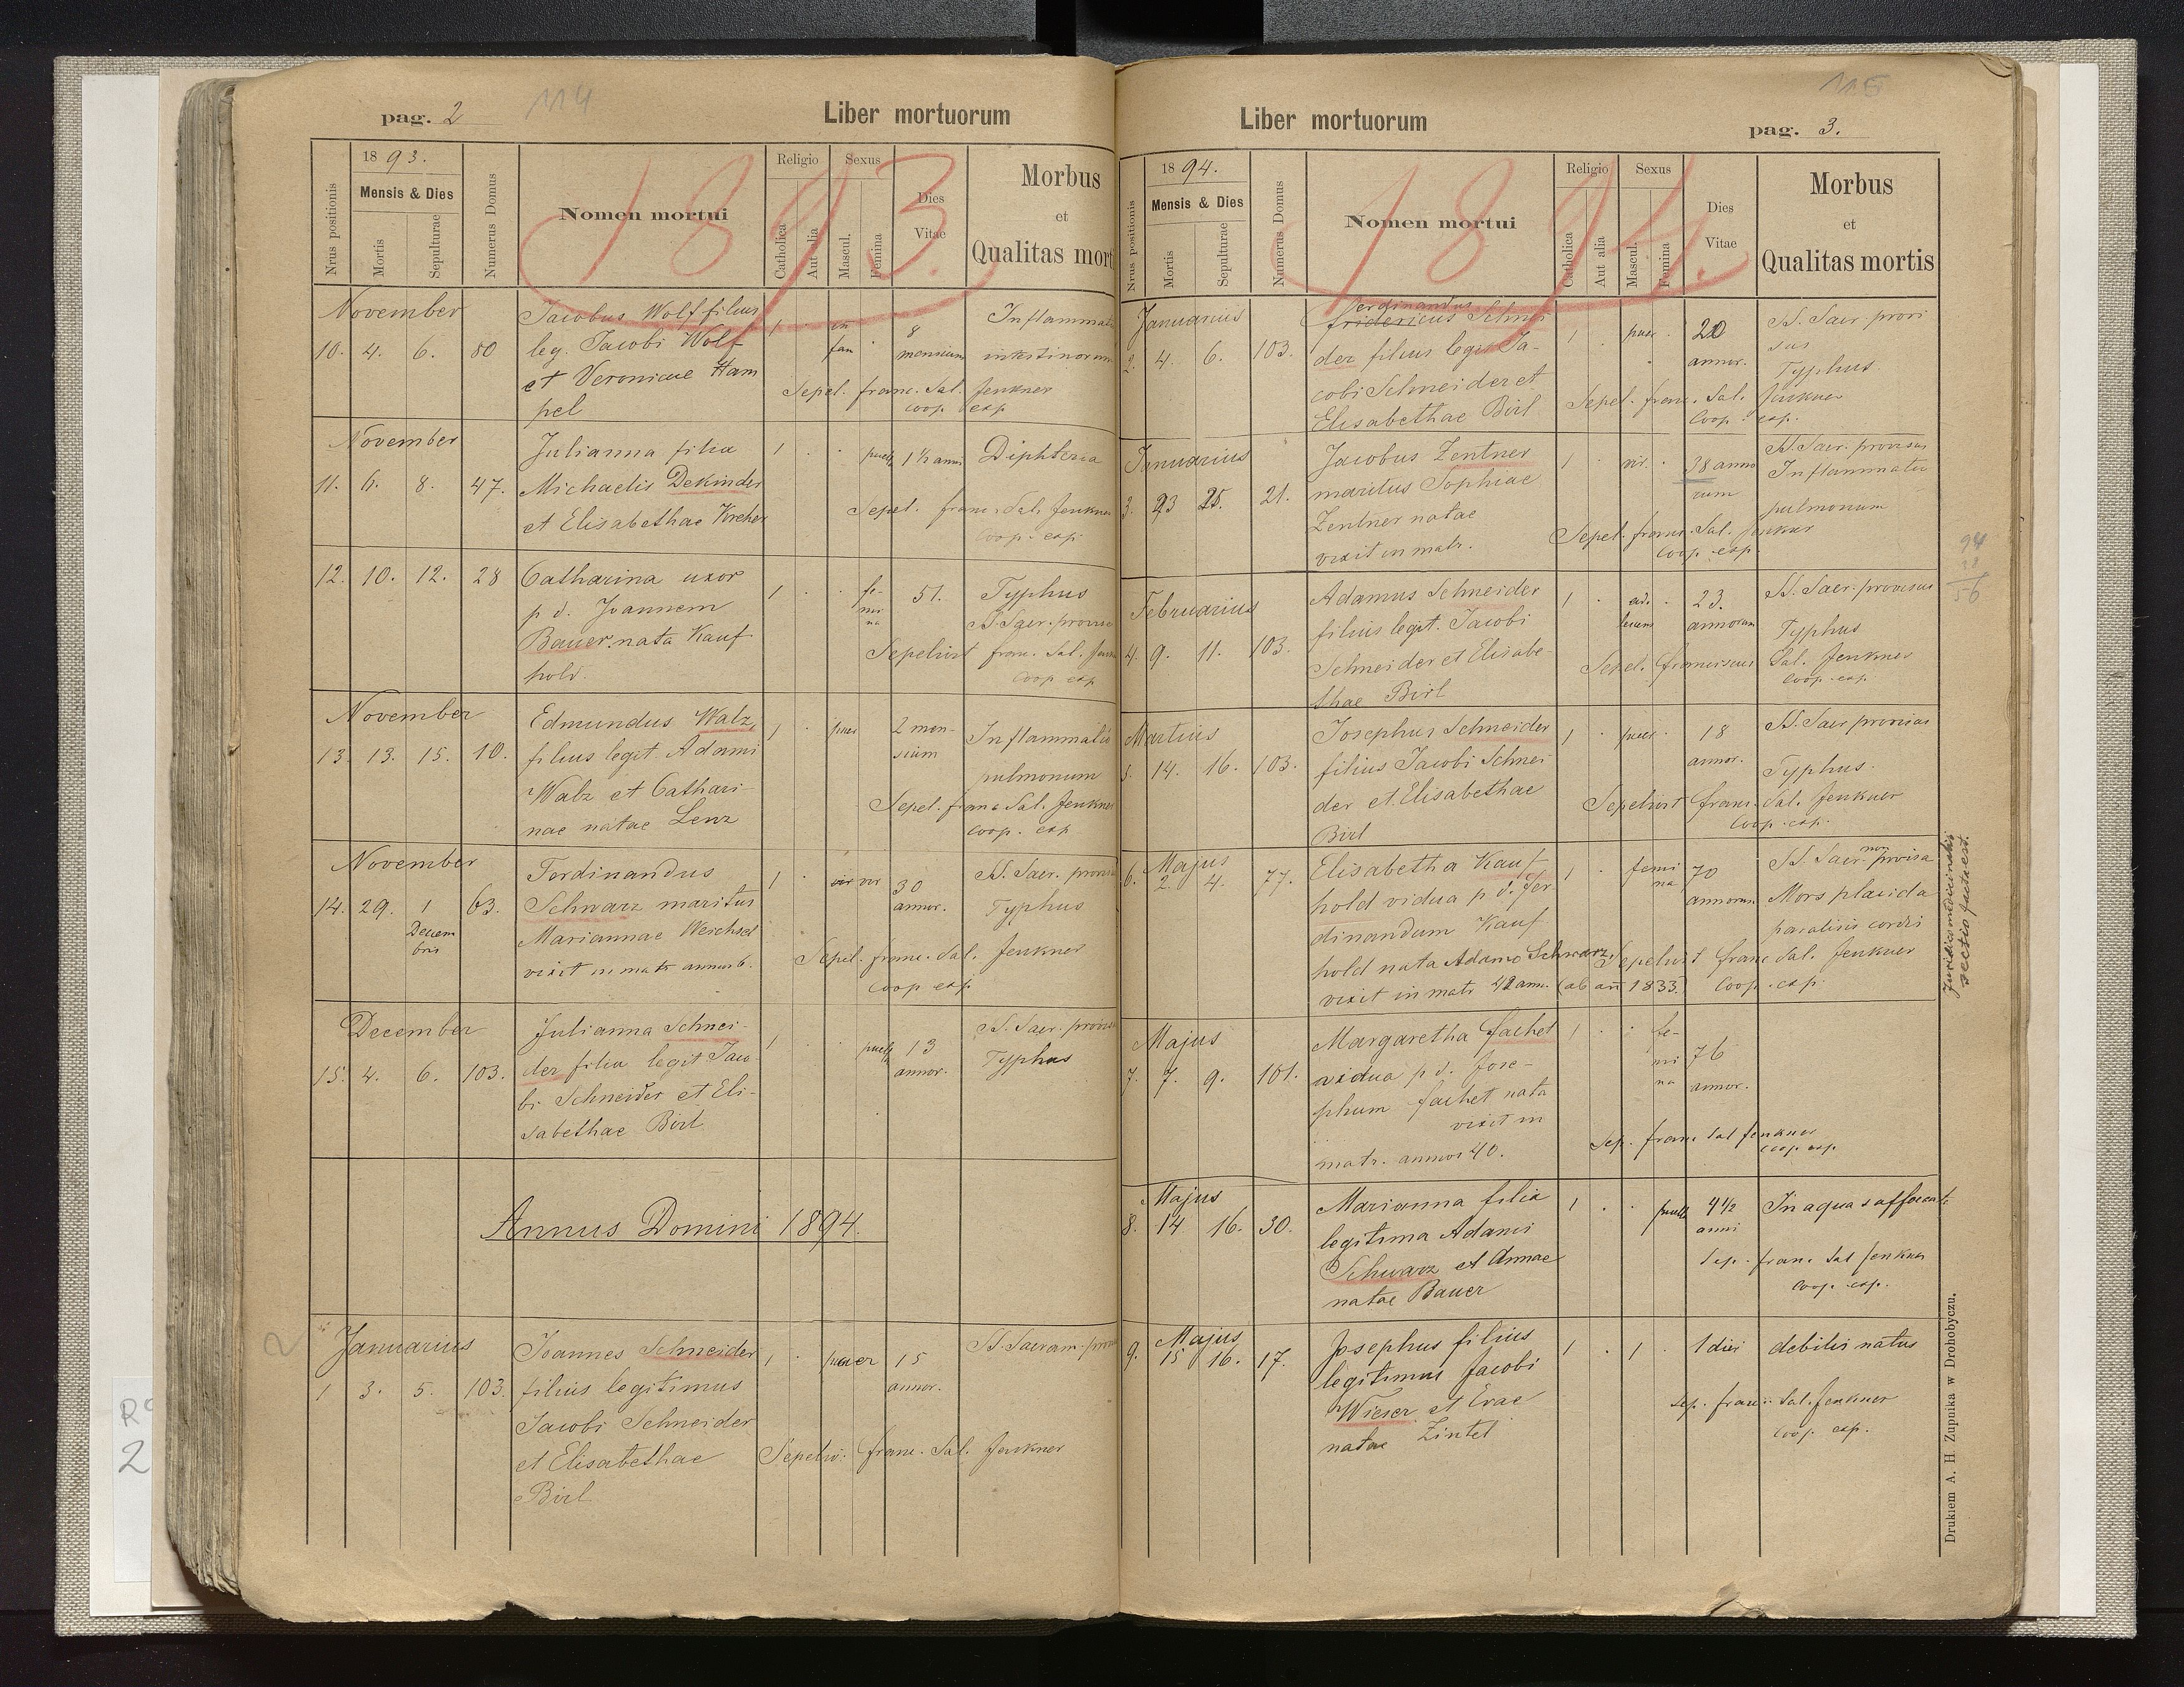 pag. 2
114
Liber mortuorum
1893.
Nrus positionis
1893.
Mensis & Dies
Mortis
Sepulturae
Numerus Domus
Nomen mortui
Religio
Catholica
Aut alia
Sexus
Mascul.
Femina
Dies
Vitae
Morbus
et
Qualitas mort
November
10. 4. 6. 80
Jacobus Wolf filius
leg. Jacobi Wolf
et Veronicae Ham
pel
1 . in
fan
8
mensium
Inflammatio
intestinorum
Sepel. franc. Sal. Jenkner
coop. exp
November
11. 6. 8. 47.
Julianna filia
Michaelis Dekinder
et Elisabethae Kreher
1 . . puella 1½ anni Diphteria
Sepel. franc. Sal. Jenkner
Coop. exp.
12. 10. 12. 28
Catharina uxor
p d. Joannem
Bauer nata Kauf
hold.
1 . . fe-
mi
na
51. Typhus
SS. Sacr. provisa
Sepelivit franc. Sal. Jenkner
Coop exp
November
13. 13. 15. 10.
Edmundus Walz
filius legit. Adami
Walz et Cathari-
nae natae Lenz
1 . puer
2 men-
sium
Inflammatio
pulmonum
Sepel. franc Sal. Jenkner
coop. exp
November
14. 29. 1
Decem
bris
63.
Ferdinandus
Schwarz maritus
Mariannae Weichsel
vixit in matr annos 6.
1 . vir
30
annor.
SS. Sacr. provisus
Typhus
Sepel. franc. Sal. Jenkner
Coop exp
December
15. 4. 6. 103.
Julianna Schnei-
der filia legit Jaco-
bi Schneider et Eli-
sabethae Birl
1 . . puella 13
annor.
SS. Sacr. provisa
Typhus
Annus Domini 1894.
Januarius
1 3. 5. 103.
Joannes Schneider
filius legitimus
Jacobi Schneider
et Elisabethae
Birl
1 . puer 15
annor.
SS. Sacram. provisus
Sepeliv: franc. Sal. Jenkner
Liber mortuorum
pag. 3.
1894.
Nrus positionis
1894.
Mensis & Dies
Mortis
Sepulturae
Numerus Domus
Nomen mortui
Religio
Catholica
Aut alia
Sexus
Mascul.
Femina
Dies
Vitae
Morbus
et
Qualitas mortis
Januarius
2. 4. 6. 103.
Ferdinandus
fridericus Schnei
der filius legit Ja-
cobi Schneider et
Elisabethae Birl
1 . puer . 20
annor.
SS. Sacr. provi
sus
Typhus
Sepel. franc. Sal. Jenkner
Coop. exp.
Januarius
3. 23 25. 21.
Jacobus Zentner
maritus Sophiae
Zentner natae
vixit in matr.
1 . vir. . 38 anno
rum
SS. Sacr. provisus
Inflammatio
pulmonum
Sepel. franc. Sal. Jenkner
Coop. exp
Februarius
4. 9. 11. 103.
Adamus Schneider
filius legit. Jacobi
Schneider et Elisabe-
thae Birl
1 . .
23.
annorum
SS. Sacr. provisus
Typhus
Sepel. franciscus Sal. Jenkner
Coop. exp
Martius
5. 14. 16. 103.
Josephus Schneider
filius Jacobi Schnei
der et Elisabethae
Birl
1 . puer . 18
annor.
SS. Sacr provisus
Typhus.
Sepelivit franc. Sal. Jenkner
Coop. exp.
Majus
6. 2. 4. 77.
Elisabetha Kauf-
hold vidua p d. Fer-
dinandum Kauf
hold nata Adamo Schwarz,
vixit in matr 42 ann. (ab an 1833)
1 . femi
na
70
annorum
SS. Sacr. non provisa
Mors placida
paralisis cordis
Sepelivit franc Sal. Jenkner
Coop. exp.
sectio facta est.
Majus
7. 7. 9. 101.
Margaretha Fachet
vidua p d. Jose-
phum Fachet nata
vixit in
matr. annos 40.
1 . . fe-
mi
na
76
annor.
Sep. franc Sal Jenkner
coop. exp.
Majus
8. 14 16. 30.
Marianna filia
legitima Adami
Schwarz et Annae
natae Bauer
1 . . puella 4½
anni
In aqua suffocata
Sep. franc Sal Jenkner
Coop. exp.
Majus
9. 15 16. 17.
Josephus filius
legitimus Jacobi
Wieser et Evae
natae Zintel
1 . 1 . 1 diei debilis natus
Sep. franc: Sal. Jenkner
coop. exp.
Drukiem A. H. Żupnika w Drohobyczu.